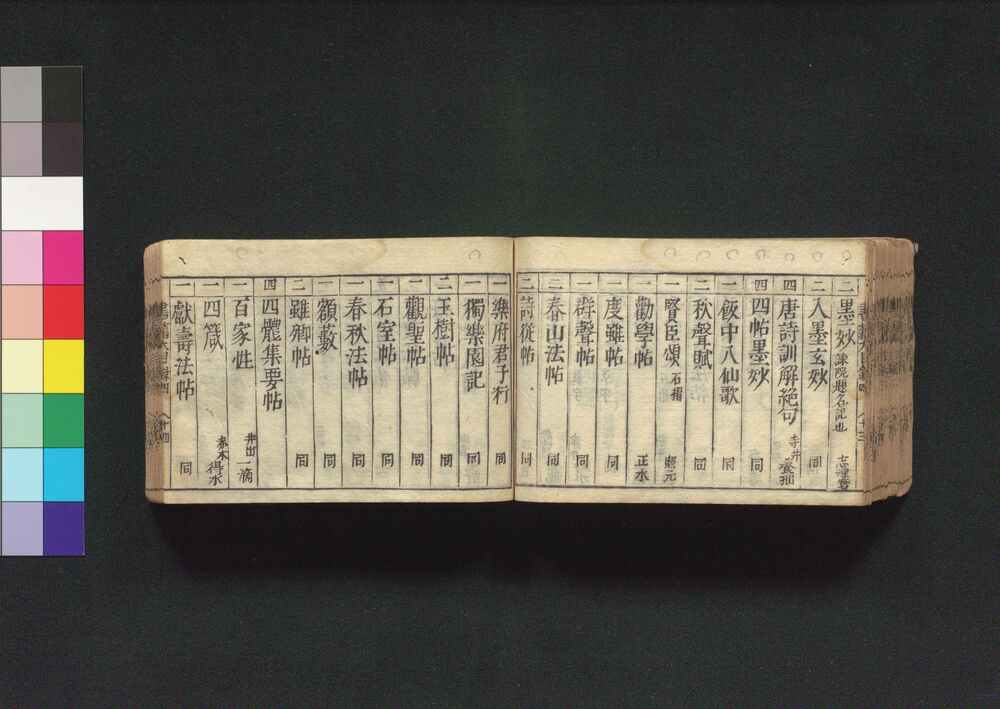 二 墨妙 諫院題名記也
二 入墨玄妙 同
四 唐詩訓解絶句 寺井養拙
四 四帖墨妙 同
一 飲中八仙歌 同
二 秋聲賦 同
一 賢臣頌 石摺
二 勸學帖 正水
一 度雖帖 同
一 群聲帖 同
二 春山法帖 同
二 詩從帖 同
一 樂府君子行 同
一 獨樂園記 同
二 玉樹帖 同
二 觀聖帖 同
一 石室帖 同
一 春秋法帖 同
一 額數 同
二 雖卿帖 同
四 四體集要帖
一 百家姓 井出一滴
一 四箴 得水
一 獻壽法帖 同